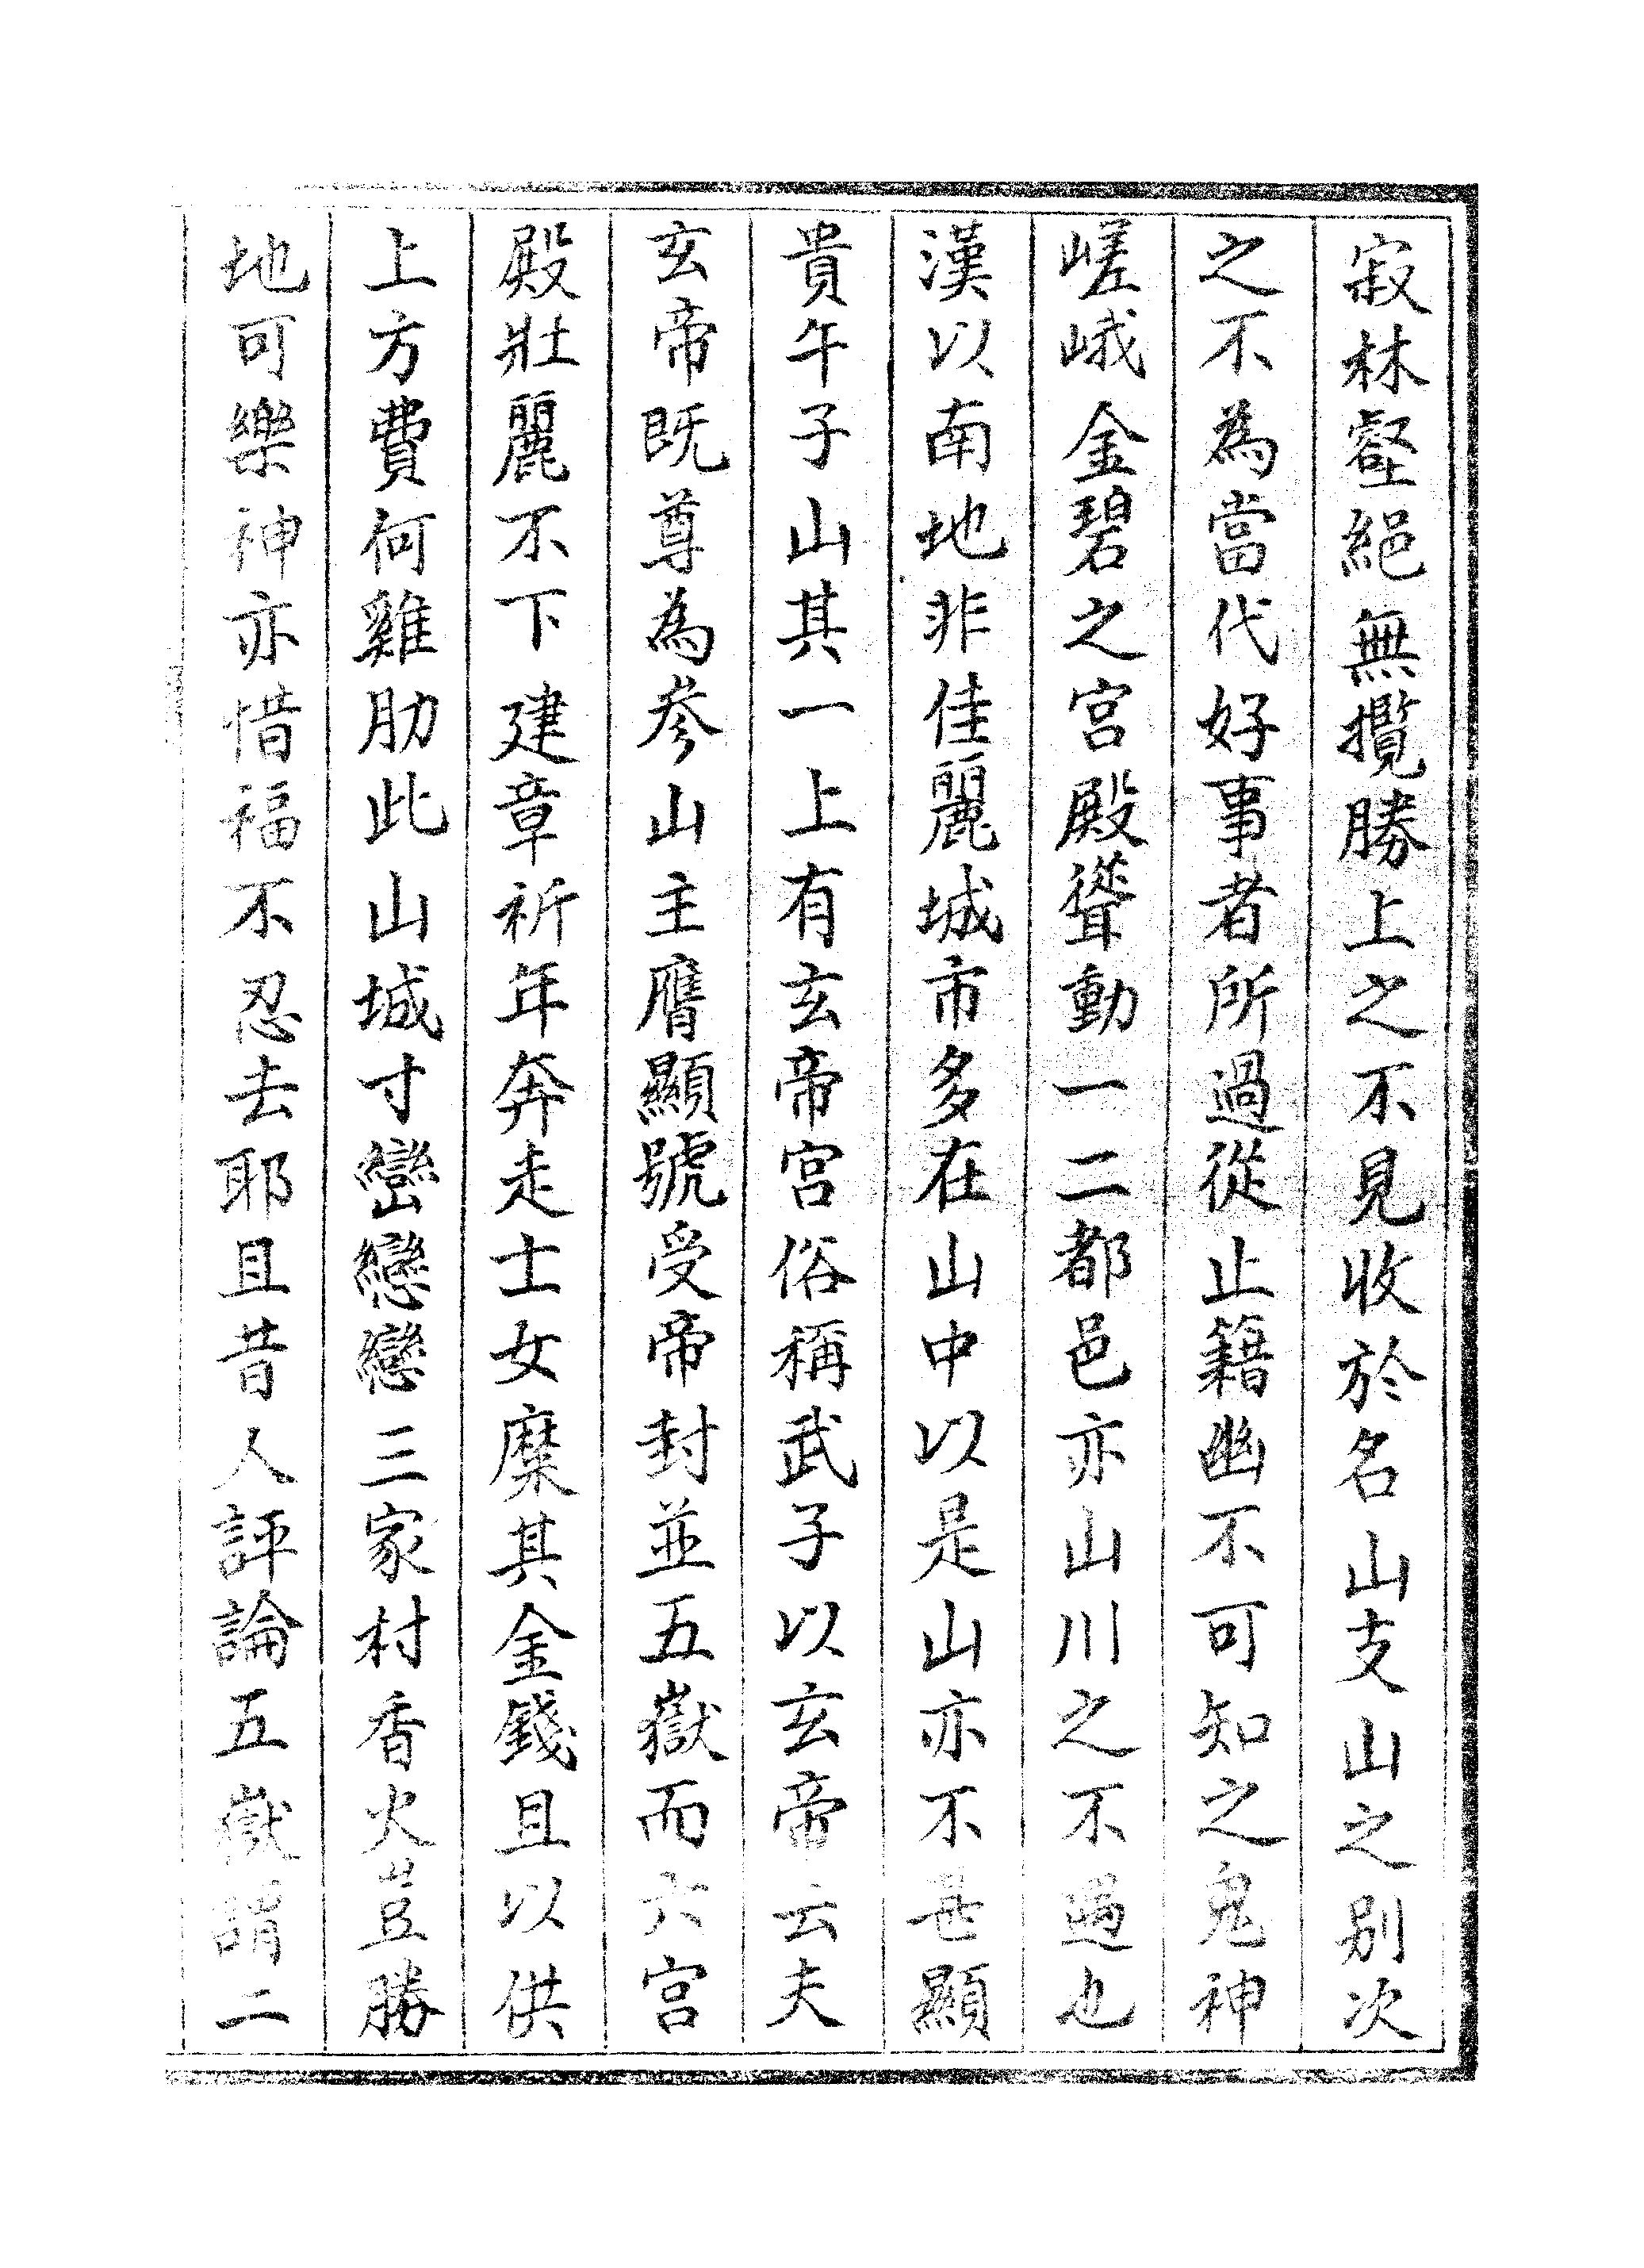 寂林壑絕無攬勝上之不見收於名山支山之别次
之不為當代好事者所過從止籍幽不可知之鬼神
嵯峨金碧之宫殿聳動一二都邑亦山川之不遇也
漢以南地非佳麗城市多在山中以是山亦不甚顯
貴午子山其一上有玄帝宫俗稱武子以玄帝云夫
玄帝既尊為參山主膺顯號受帝封並五嶽而六宫
殿壯麗不下建章祈年奔走士女糜其金錢且以供
上方費何雞肋此山城寸巒戀戀三家村香火豈勝
地可樂神亦惜福不忍去耶且昔人評論五嶽謂二